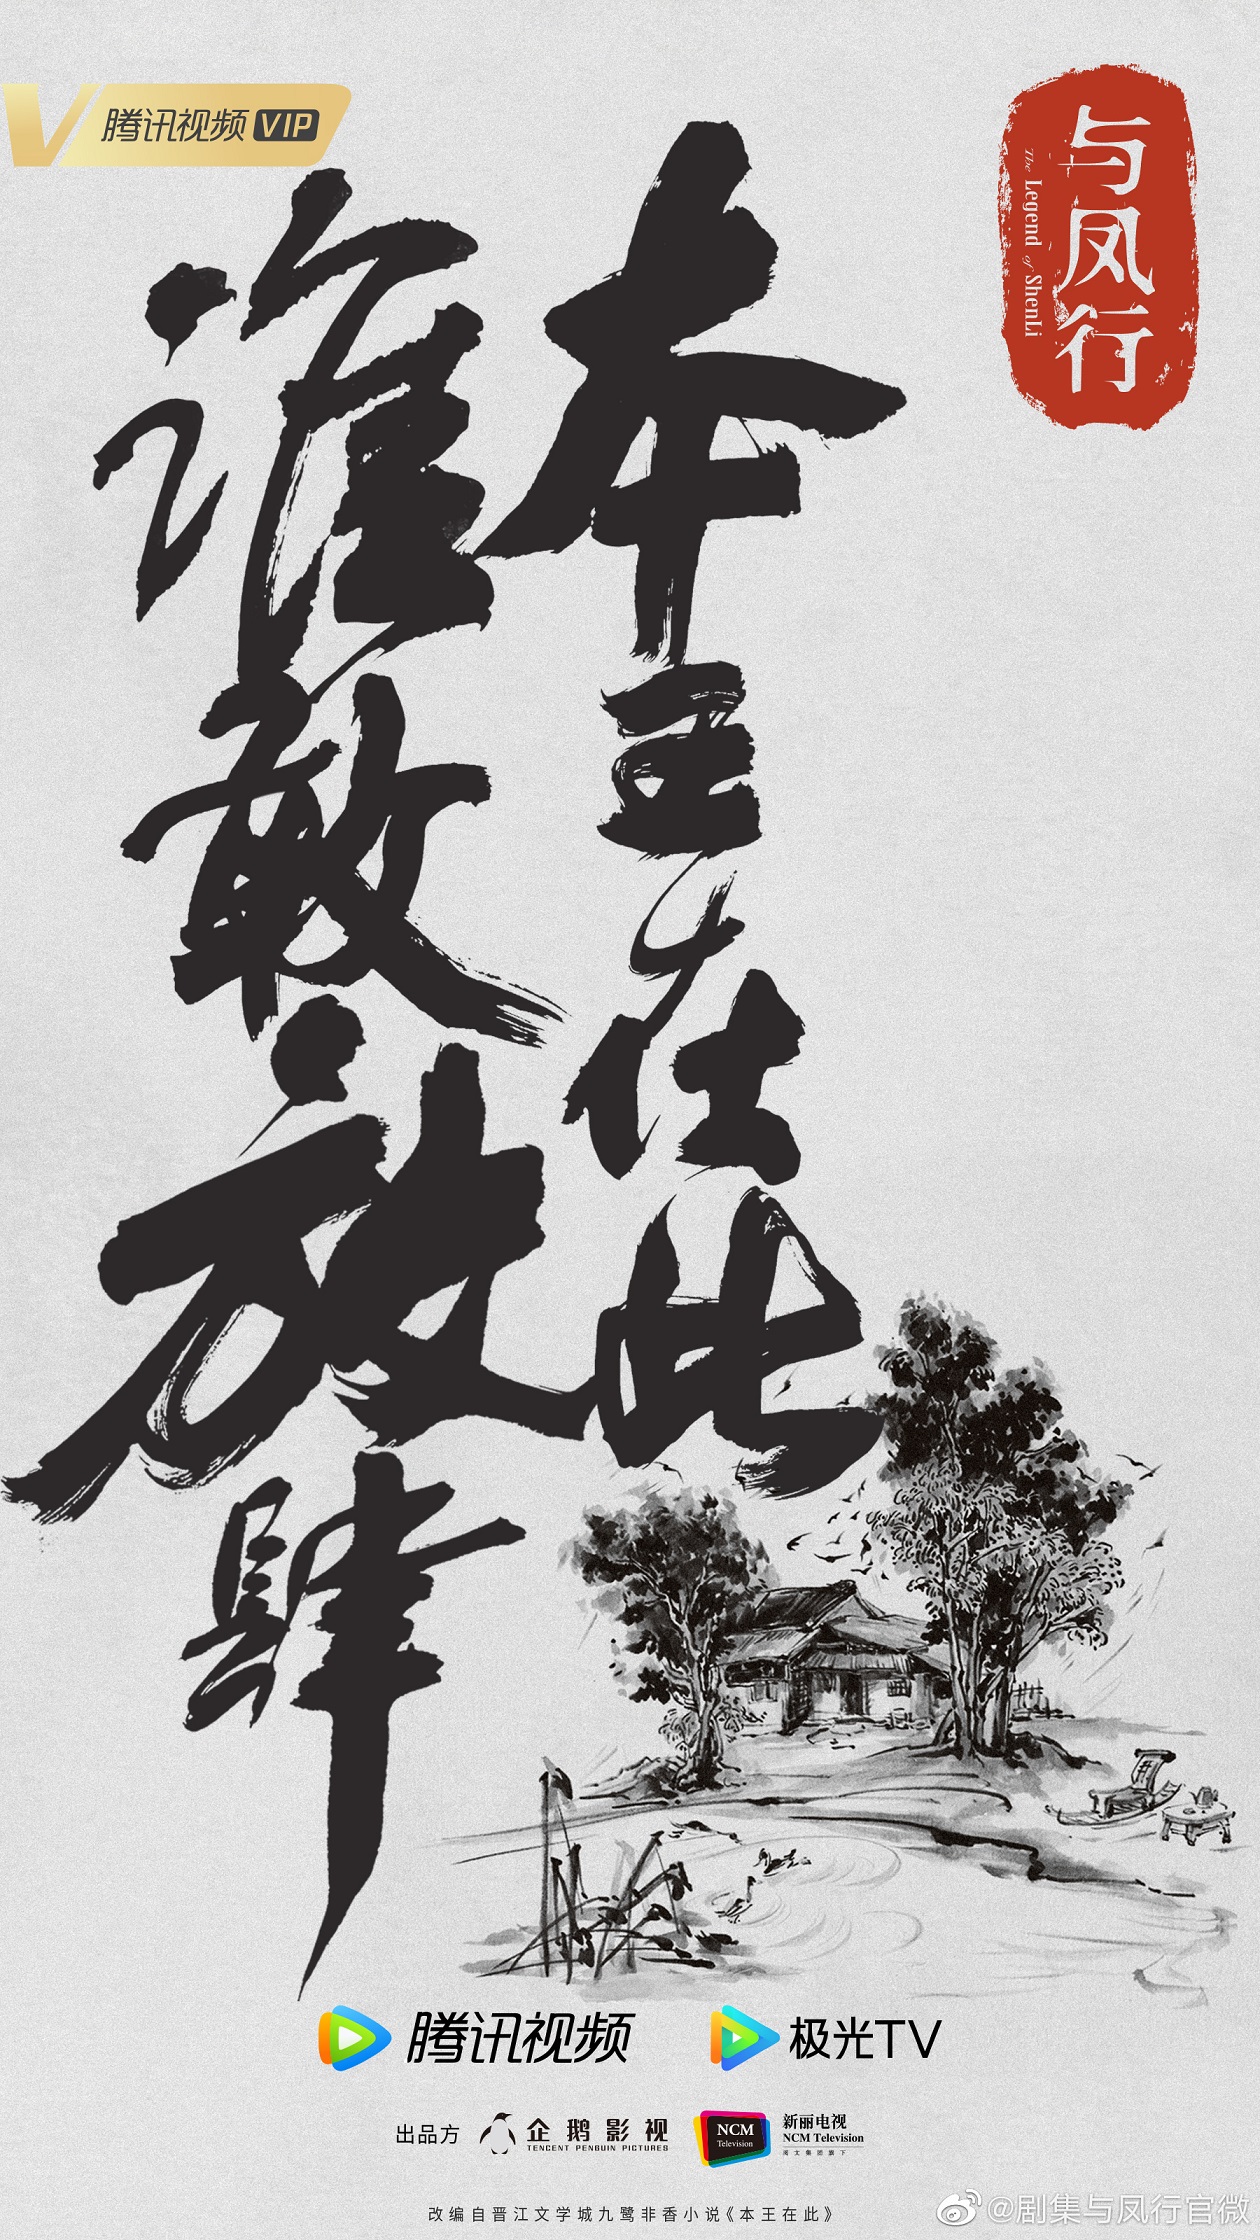 腾讯视频 VIP
与凤行
The Legend of ShenLi
本王在此
谁敢放肆
腾讯视频
极光TV
出品方
企鹅影视
TENCENT PENGUIN PICTURES
NCM
Television
新丽电视
NCM Television
阅文集团旗下
改编自晋江文学城九鹭非香小说《本王在此》
@剧集与凤行官微